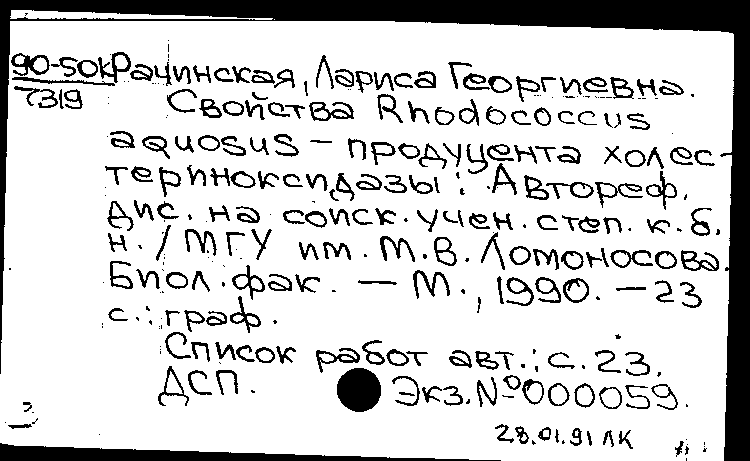 90-50к Рачинская, Лариса Георгиевна.
7319
Свойства Rhodococcus
aquosus – продуцента холес-
териноксидазы : Автореф.
дис. на соиск. учен. степ. к. б.
н. / МГУ им. М.В. Ломоносова.
Биол. фак. — М., 1990. — 23
с. : граф.
Список работ авт.: с. 23.
ДСП. Экз. № 000059.
28.01.91 ЛК